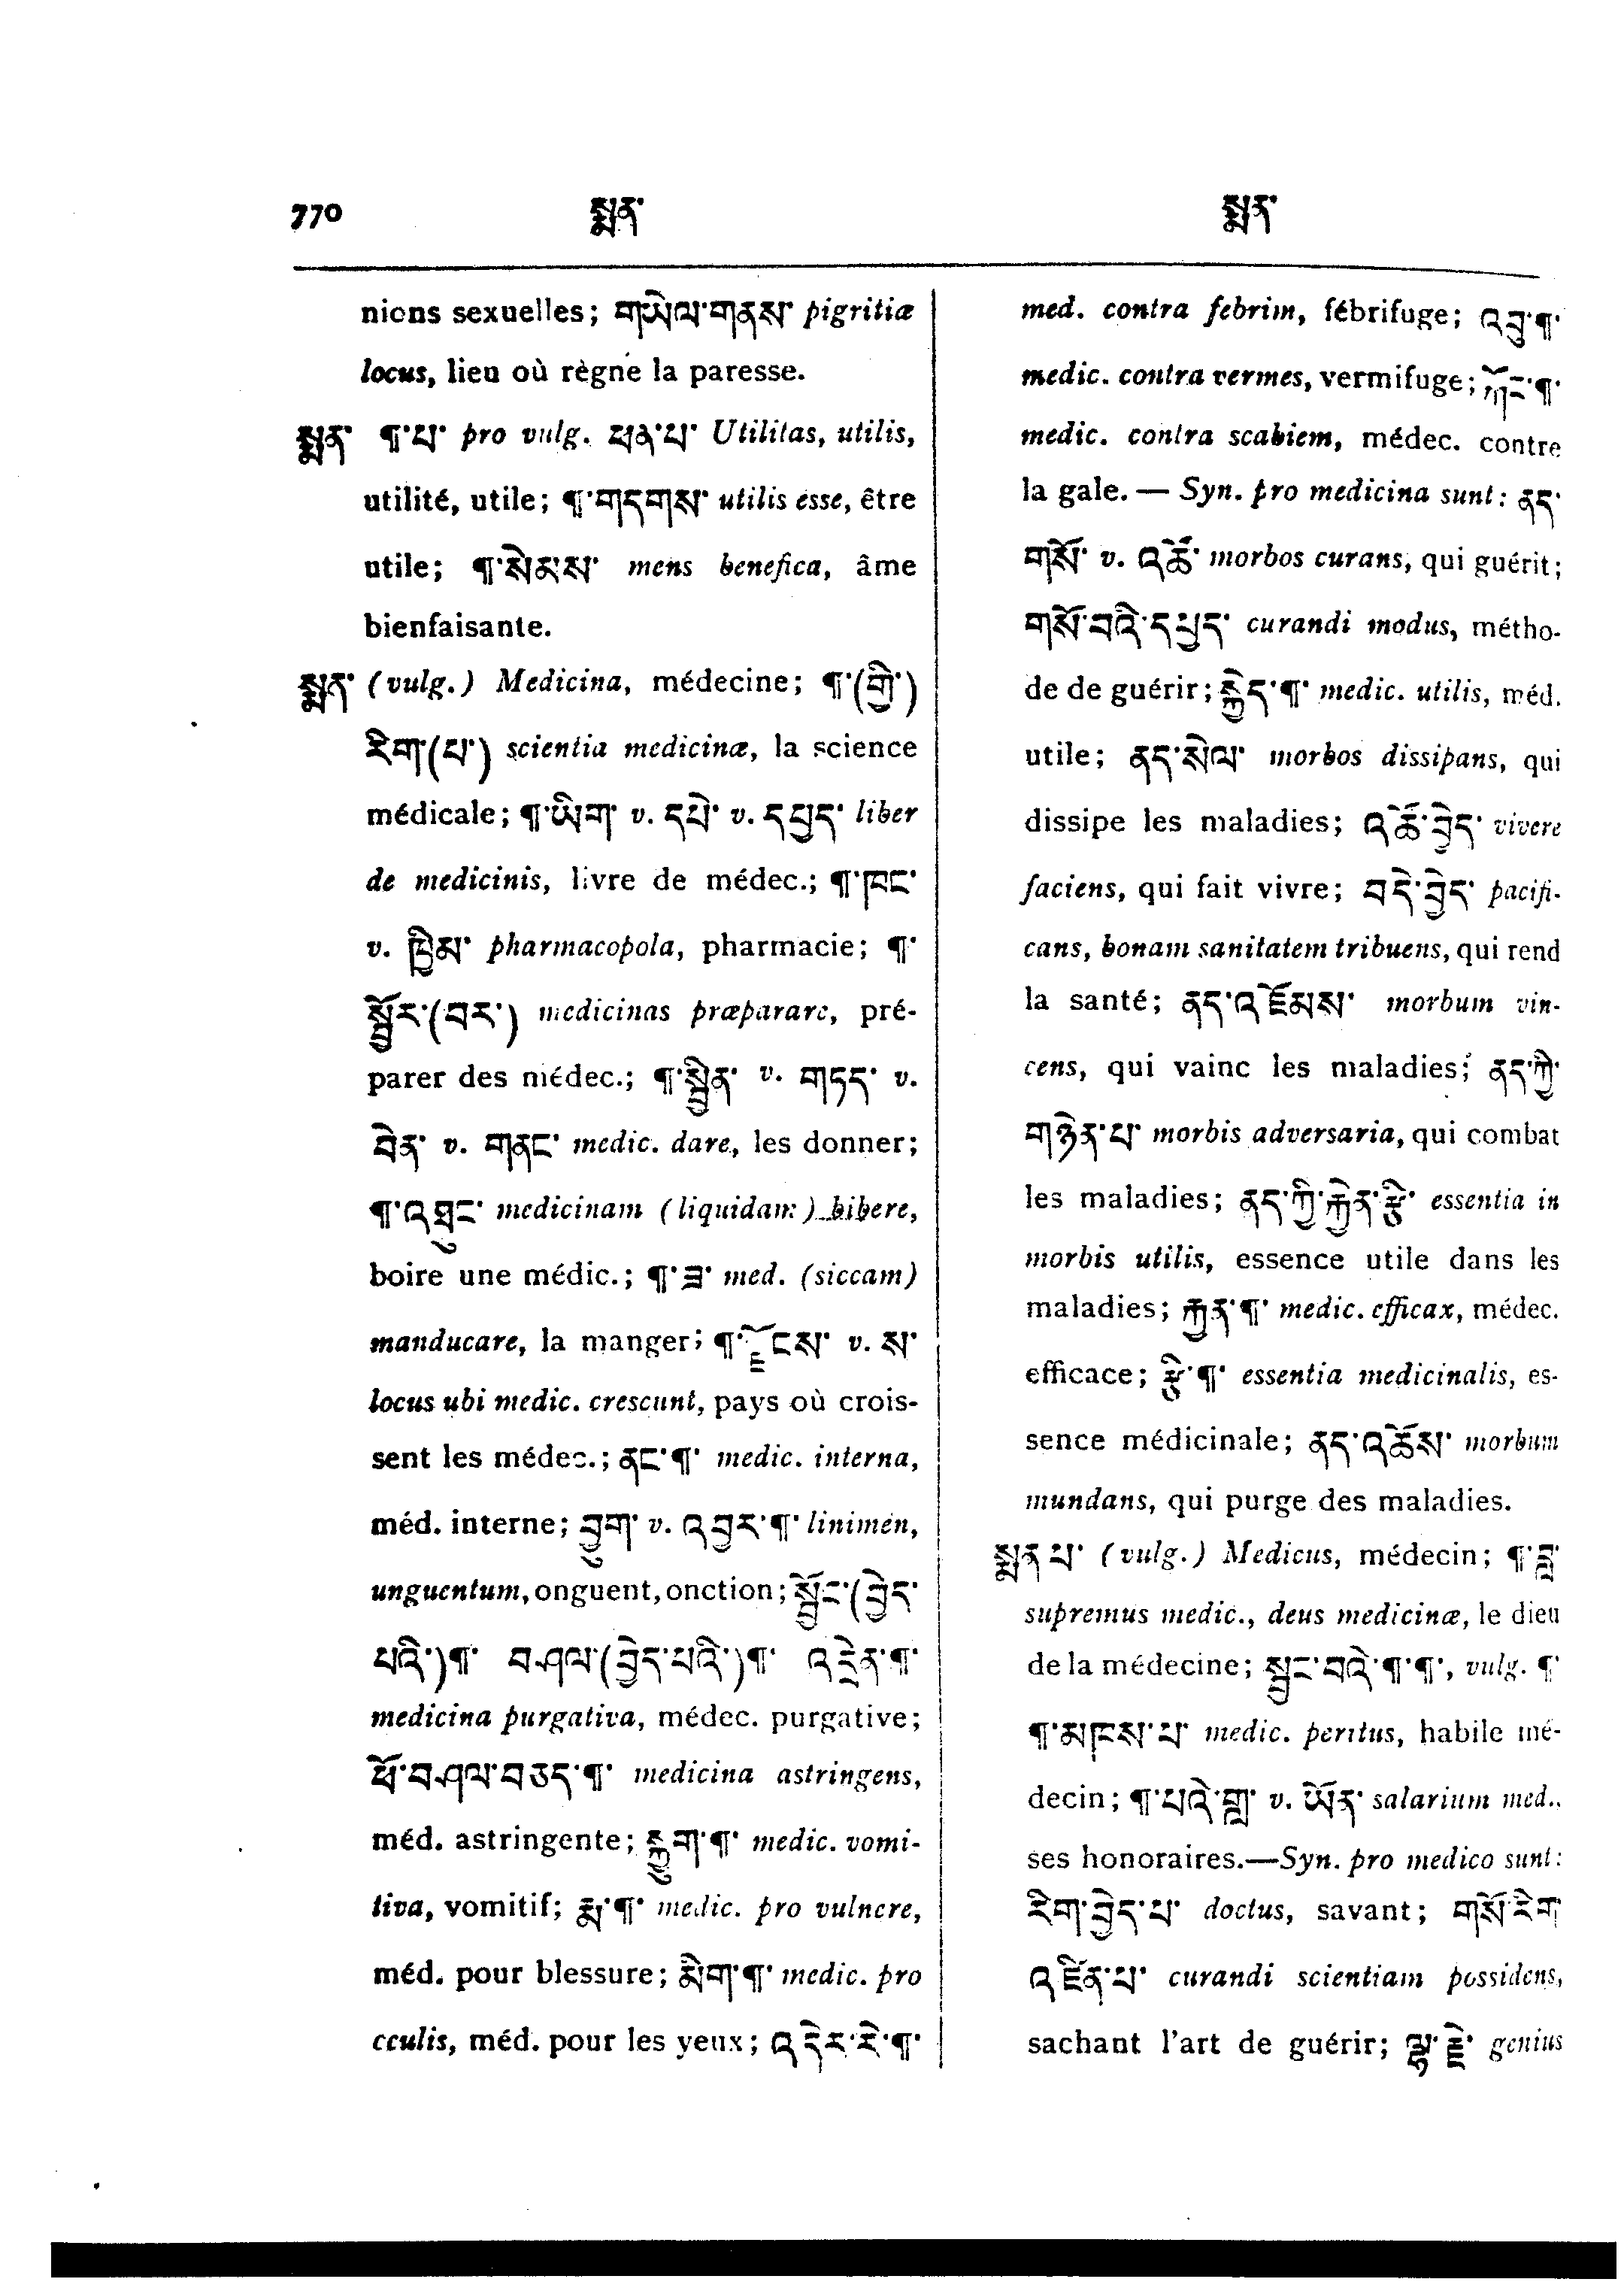 770 སྨན་ སྨན་
nions sexuelles; གཡེལ་གནས་ pigritiæ
locus, lieu où règne la paresse.
སྨན་ ¶་པ་ pro vulg. ཕན་པ་ Utilitas, utilis,
utilité, utile; ¶་གདགས་ utilis esse, être
utile; ¶་སེམས་ mens benefica, âme
bienfaisante.
སྨན་ (vulg.) Medicina, médecine; ¶་(གྱི་)
རིག་(པ་) scientia medicinæ, la science
médicale; ¶་ཡིག་ v. དཔེ་ v. དཔྱད་ liber
de medicinis, livre de médec.; ¶་ཁང་
v. ཁྱིམ་ pharmacopola, pharmacie; ¶་
སྦྱོར་(བར་) medicinas præparare, pré-
parer des médec.; ¶་སྦྱིན་ v. གཏད་ v.
བྲིན་ v. གནང་ medic. dare, les donner;
¶་འཐུང་ medicinam (liquidam) bibere,
boire une médic.; ¶་ཟ་ med. (siccam)
manducare, la manger; ¶་ལྗོངས་ v. ས་
locus ubi medic. crescunt, pays où crois-
sent les médec.; ནང་¶་ medic. interna,
méd. interne; བྱུག་ v. འབྱར་¶་ linimen,
unguentum, onguent, onction; སྦྱོང་(བྱེད་
པའི་)¶་ བཤལ་(བྱེད་པའི་)¶་ འདྲེན་¶་
medicina purgativa, médec. purgative;
ཕོ་བཤལ་བཅད་¶་ medicina astringens,
méd. astringente; སྐྱུག་¶་ medic. vomi-
tiva, vomitif; རྨ་¶་ medic. pro vulnere,
méd. pour blessure; མིག་¶་ medic. pro
oculis, méd. pour les yeux; འདེར་རེ་¶་
med. contra febrim, fébrifuge; འབུ་¶་
medic. contra vermes, vermifuge; རྐོང་¶་
medic. contra scabiem, médec. contre
la gale. — Syn. pro medicina sunt: ནད་
གསོ་ v. འཚོ་ morbos curans, qui guérit;
གསོ་བའི་དཔྱད་ curandi modus, métho-
de de guérir; སྐྱེད་¶་ medic. utilis, méd.
utile; ནད་སེལ་ morbos dissipans, qui
dissipe les maladies; འཚོ་བྱེད་ vivere
faciens, qui fait vivre; བདེ་བྱེད་ pacifi-
cans, bonam sanitatem tribuens, qui rend
la santé; ནད་འཇོམས་ morbum vin-
cens, qui vainc les maladies; ནད་ཀྱི་
གཉེན་པ་ morbis adversaria, qui combat
les maladies; ནད་ཀྱི་རྐྱེན་རྩི་ essentia in
morbis utilis, essence utile dans les
maladies; རྐྱན་¶་ medic. efficax, médec.
efficace; རྩི་¶་ essentia medicinalis, es-
sence médicinale; ནད་འཚོས་ morbum
mundans, qui purge des maladies.
སྨན་པ་ (vulg.) Medicus, médecin; ¶་བླ་
supremus medic., deus medicinæ, le dieu
de la médecine; སྦྱང་བའི་¶་¶་, vulg. ¶་
¶་མཁས་པ་ medic. peritus, habile mé-
decin; ¶་པའི་གླ་ v. ཡོན་ salarium med.,
ses honoraires.—Syn. pro medico sunt:
རིག་བྱེད་པ་ doctus, savant; གསོ་རིག
འཛིན་པ་ curandi scientiam possidens,
sachant l'art de guérir; ལྷ་རྗེ་ genius